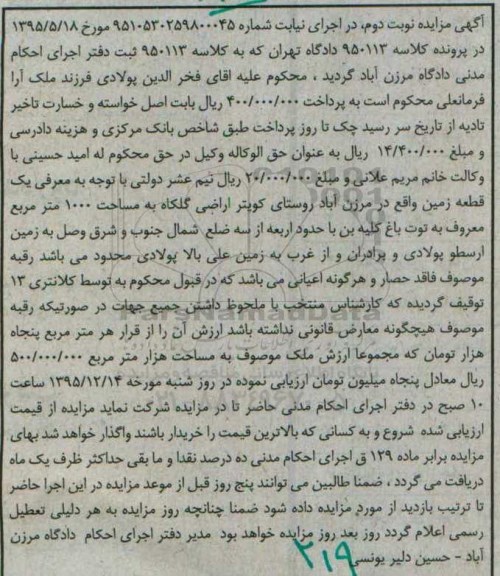 آگهی مزایده نوبت دوم، در اجرای نیابت شماره ۹۵۱۰۵۳۰۲۵۹۸۰۰۰۴۵ مورخ ۱۳۹۵/۵/۱۸
در پرونده کلاسه ۹۵۰۱۱۳ دادگاه تهران که به کلاسه ۹۵۰۱۱۳ ثبت دفتر اجرای احکام
مدنی دادگاه مرزن آباد گردید ، محکوم علیه اقای فخر الدین پولادی فرزند ملک آرا
فرمانعلی محکوم است به پرداخت ۴۰۰/۰۰۰/۰۰۰ ریال بابت اصل خواسته و خسارت تاخیر
تادیه از تاریخ سر رسید چک تا روز پرداخت طبق شاخص بانک مرکزی و هزینه دادرسی
و مبلغ ۱۴/۴۰۰/۰۰۰ ریال به عنوان حق الوکاله وکیل در حق محکوم له امید حسینی با
وکالت خانم مریم علائی و مبلغ ۲۰/۰۰۰/۰۰۰ ریال نیم عشر دولتی با توجه به معرفی یک
قطعه زمین واقع در مرزن آباد روستای کویتر اراضی گلکاه به مساحت ۱۰۰۰ متر مربع
معروف به توت باغ کلیه بن با حدود اربعه از سه ضلع شمال جنوب و شرق وصل به زمین
ارسطو پولادی و برادران و از غرب به زمین علی بالا پولادی محدود می باشد رقبه
موصوف فاقد حصار و هرگونه اعیانی می باشد که در قبول محکوم به توسط کلانتری ۱۳
توقیف گردیده که کارشناس منتخب با ملحوظ داشتن جمیع جهات در صورتیکه رقبه
موصوف هیچگونه معارض قانونی نداشته باشد ارزش آن را از قرار هر متر مربع پنجاه
هزار تومان که مجموعا ارزش ملک موصوف به مساحت هزار متر مربع ۵۰۰/۰۰۰/۰۰۰
ریال معادل پنجاه میلیون تومان ارزیابی نموده در روز شنبه مورخه ۱۳۹۵/۱۲/۱۴ ساعت
۱۰ صبح در دفتر اجرای احکام مدنی حاضر تا در مزایده شرکت نماید مزایده از قیمت
ارزیابی شده شروع و به کسانی که بالاترین قیمت را خریدار باشند واگذار خواهد شد بهای
مزایده برابر ماده ۱۲۹ ق اجرای احکام مدنی ده درصد نقدا و ما بقی حداکثر ظرف یک ماه
دریافت می گردد ، ضمنا طالبین می توانند پنج روز قبل از موعد مزایده در این اجرا حاضر
تا ترتیب بازدید از مورد مزایده داده شود ضمنا چنانچه روز مزایده به هر دلیلی تعطیل
رسمی اعلام گردد روز بعد روز مزایده خواهد بود مدیر دفتر اجرای احکام دادگاه مرزن
آباد - حسین دلیر یونسی
۲۱۹
ParsNamadData